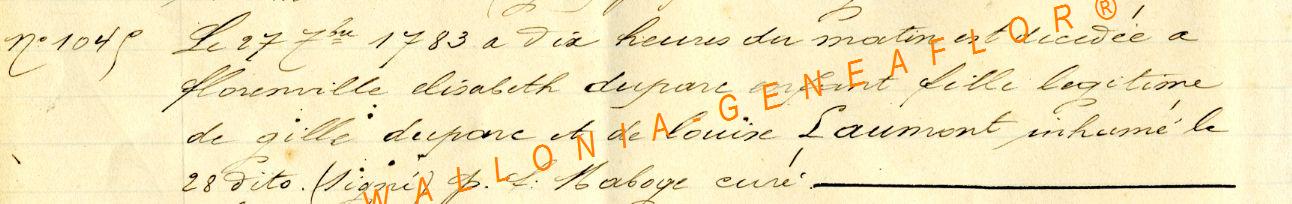 N° 1045 Le 27 7bre 1783 a dix heures du matin est décédée a
florenville elisabeth duparc enfant fille legitime
de gille duparc et de louise Laumont inhumé le
28 dito. (Signé) P. L. Maboge curé.
WALLONIA-GENEAFLOR®